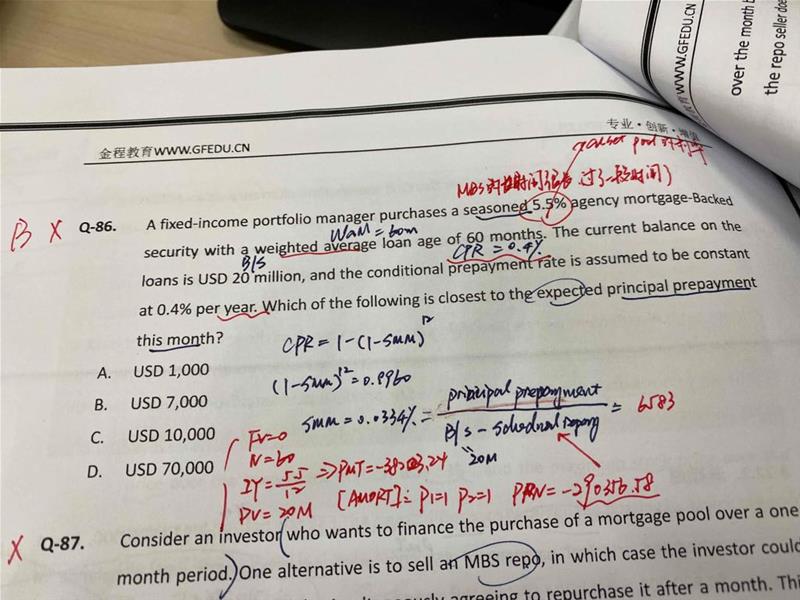 over the month b
the repo seller doe
WWW.GFEDU.CN
金程教育WWW.GFEDU.CN
专业·创新·增值
pool 的利率
MBS 过了一段时间)
B X Q-86. A fixed-income portfolio manager purchases a seasoned 5.5% agency mortgage-Backed
WAM = 60m
security with a weighted average loan age of 60 months. The current balance on the
B/S
CPR = 0.4%
loans is USD 20 million, and the conditional prepayment rate is assumed to be constant
at 0.4% per year. Which of the following is closest to the expected principal prepayment
this month?
CPR = 1-(1-SMM)^12
A. USD 1,000
(1-SMM)^12 = 0.8960
B. USD 7,000
SMM = 0.0334% = principal prepayment / B/S - = 6583
C. USD 10,000
20M
D. USD 70,000
FV=0
N=60
IY = 5.5/12 => PMT = 
PV = 20M
[AMORT]: P1=1 P2=1 PRN = -290356.58
X Q-87. Consider an investor who wants to finance the purchase of a mortgage pool over a one
month period. One alternative is to sell an MBS repo, in which case the investor could
agreeing to repurchase it after a month. Thi